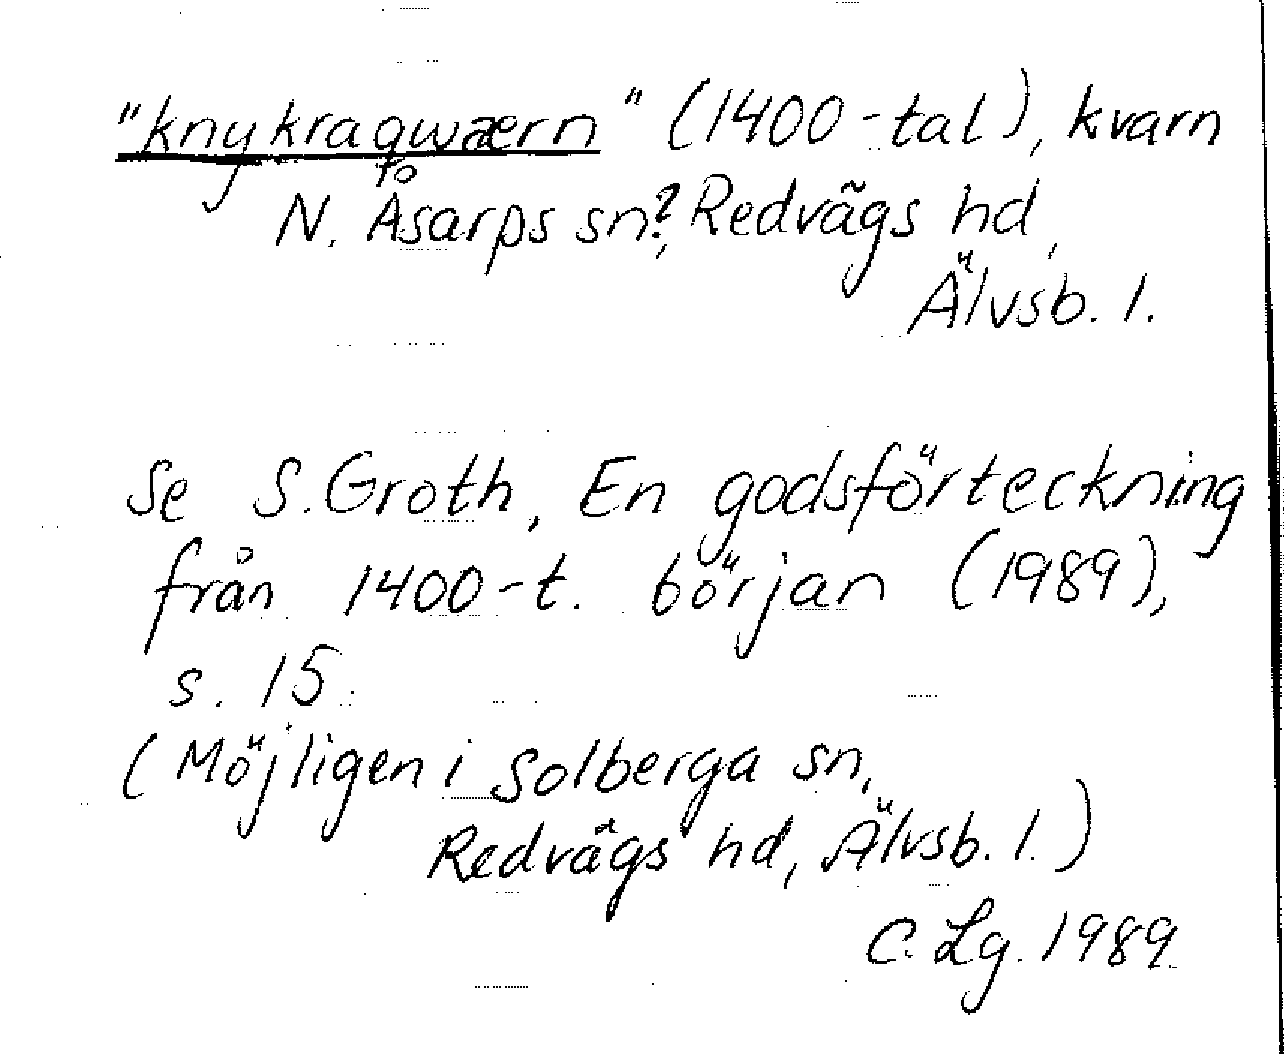 "knykraqwærn" (1400-tal), kvarn
N. Åsarps sn?, Redvägs hd,
Älvsb. l.
Se S. Groth, En godsförteckning
från 1400-t. början (1989),
s. 15.
(Möjligen i Solberga sn,
Redvägs hd, Älvsb. l.)
C. Lg. 1989